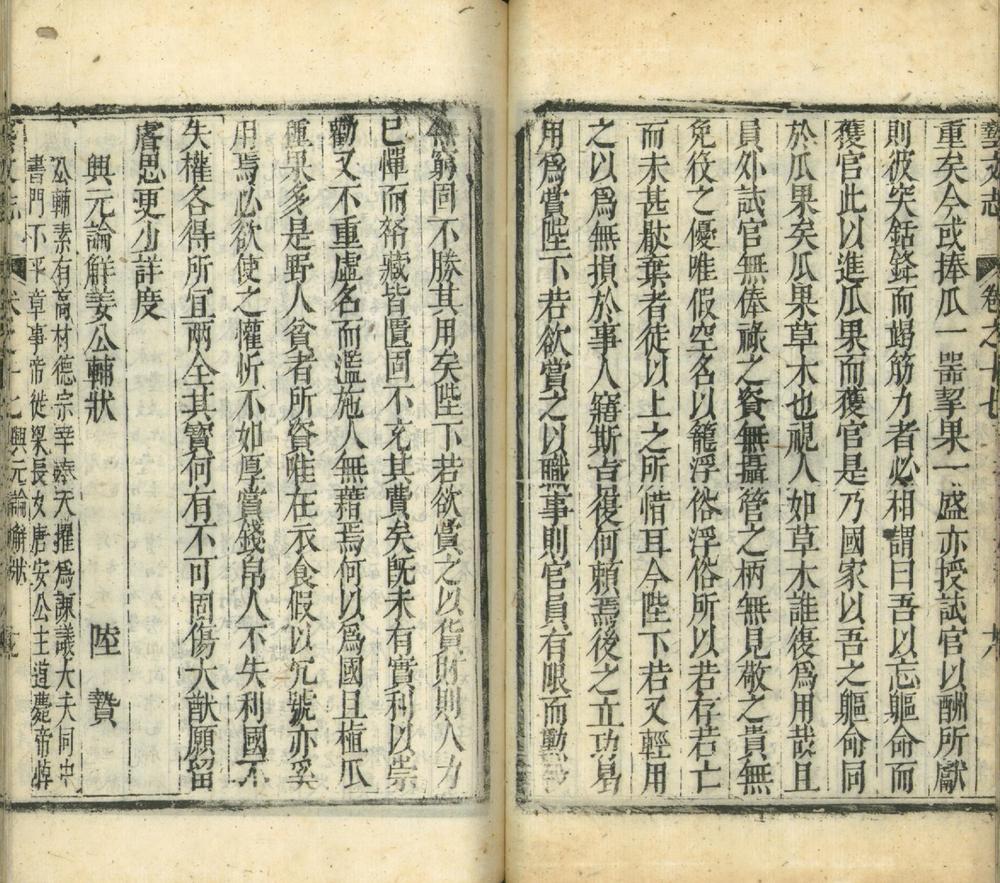 藝文志 卷之十七
重矣今或捧瓜一器挈果一盛亦授試官以酬所獻
則彼突銛鋒而竭筋力者必相謂曰吾以忘軀命而
獲官此以進瓜果而獲官是乃國家以吾之軀命同
於瓜果矣瓜果草木也視人如草木誰復爲用哉且
員外試官無俸祿之資無攝管之柄無見敬之貴無
免役之優唯假空名以籠浮俗浮俗所以若存若亡
而未甚厭棄者徒以上之所惜耳今陛下若又輕用
之以爲無損於事人寤斯旨復何賴焉後之立功曷
用爲賞陛下若欲賞之以職事則官員有限而勳勞
無窮固不勝其用矣陛下若欲賞之以貨財則人力
已憚而帑藏皆匱固不充其費矣旣未有實利以崇
勸又不重虛名而濫施人無藉焉何以爲國且植瓜
種果多是野人貧者所資唯在衣食假以冗號亦奚
用焉必欲使之懽忻不如厚賞錢帛人不失利國不
失權各得所宜兩全其寶何有不可固傷大猷願留
睿思更少詳度
興元論解姜公輔狀 陸贄
公輔素有高材德宗幸奉天擢爲諫議大夫同中
書門下平章事帝徙梁長女唐安公主道薨帝悼
藝文志 興元論解狀